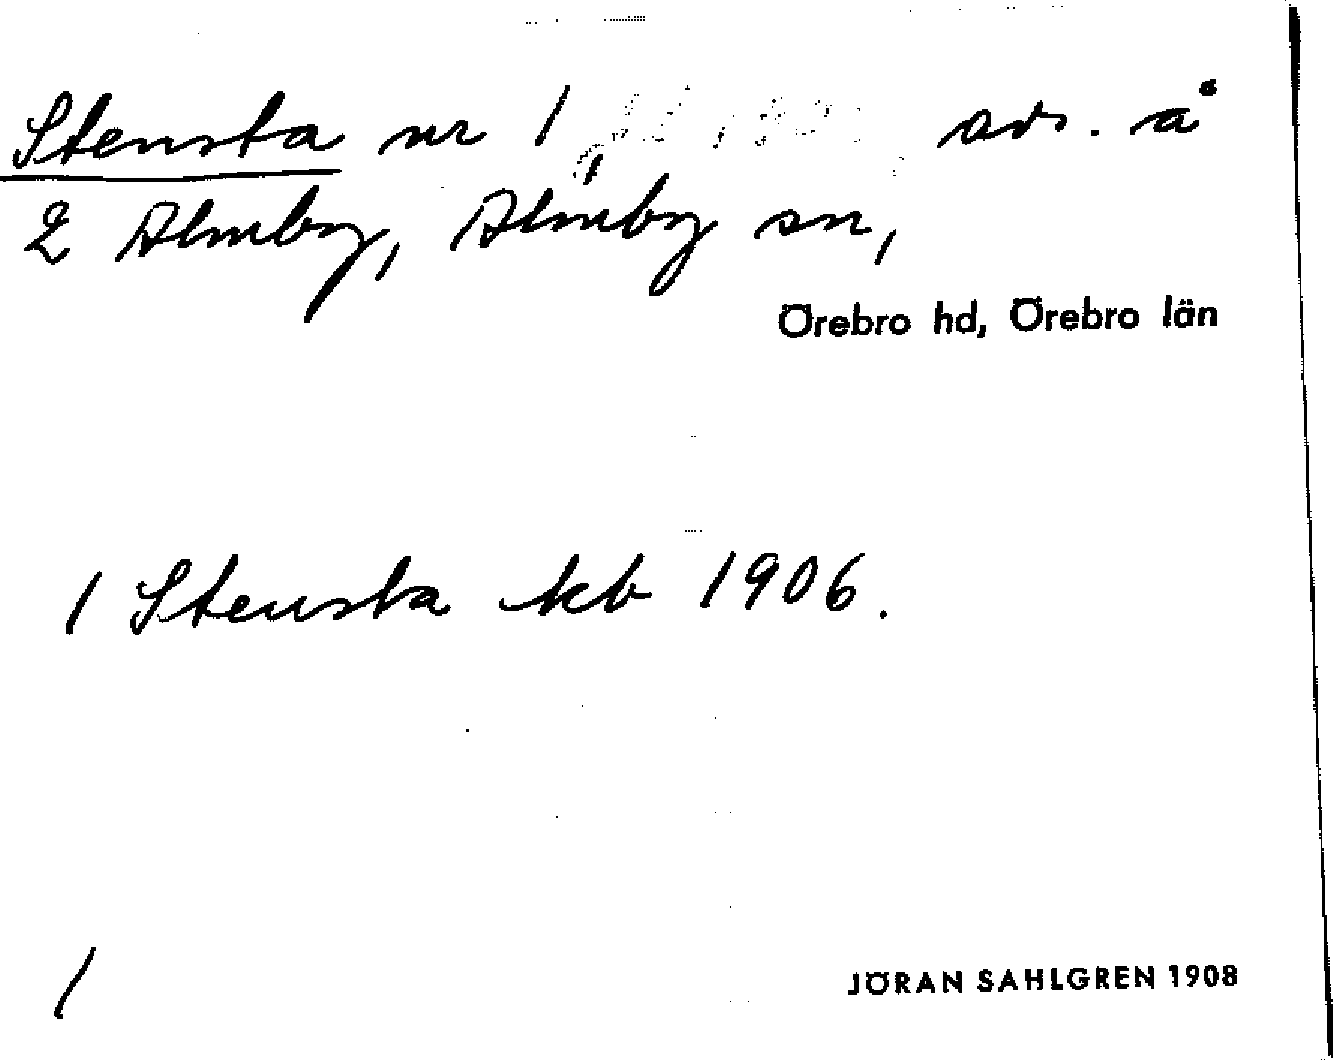 Stensta nr 1, avs. å
2 Almby, Almby sn,
Örebro hd, Örebro län
1 Stensta kb 1906.
1
JÖRAN SAHLGREN 1908